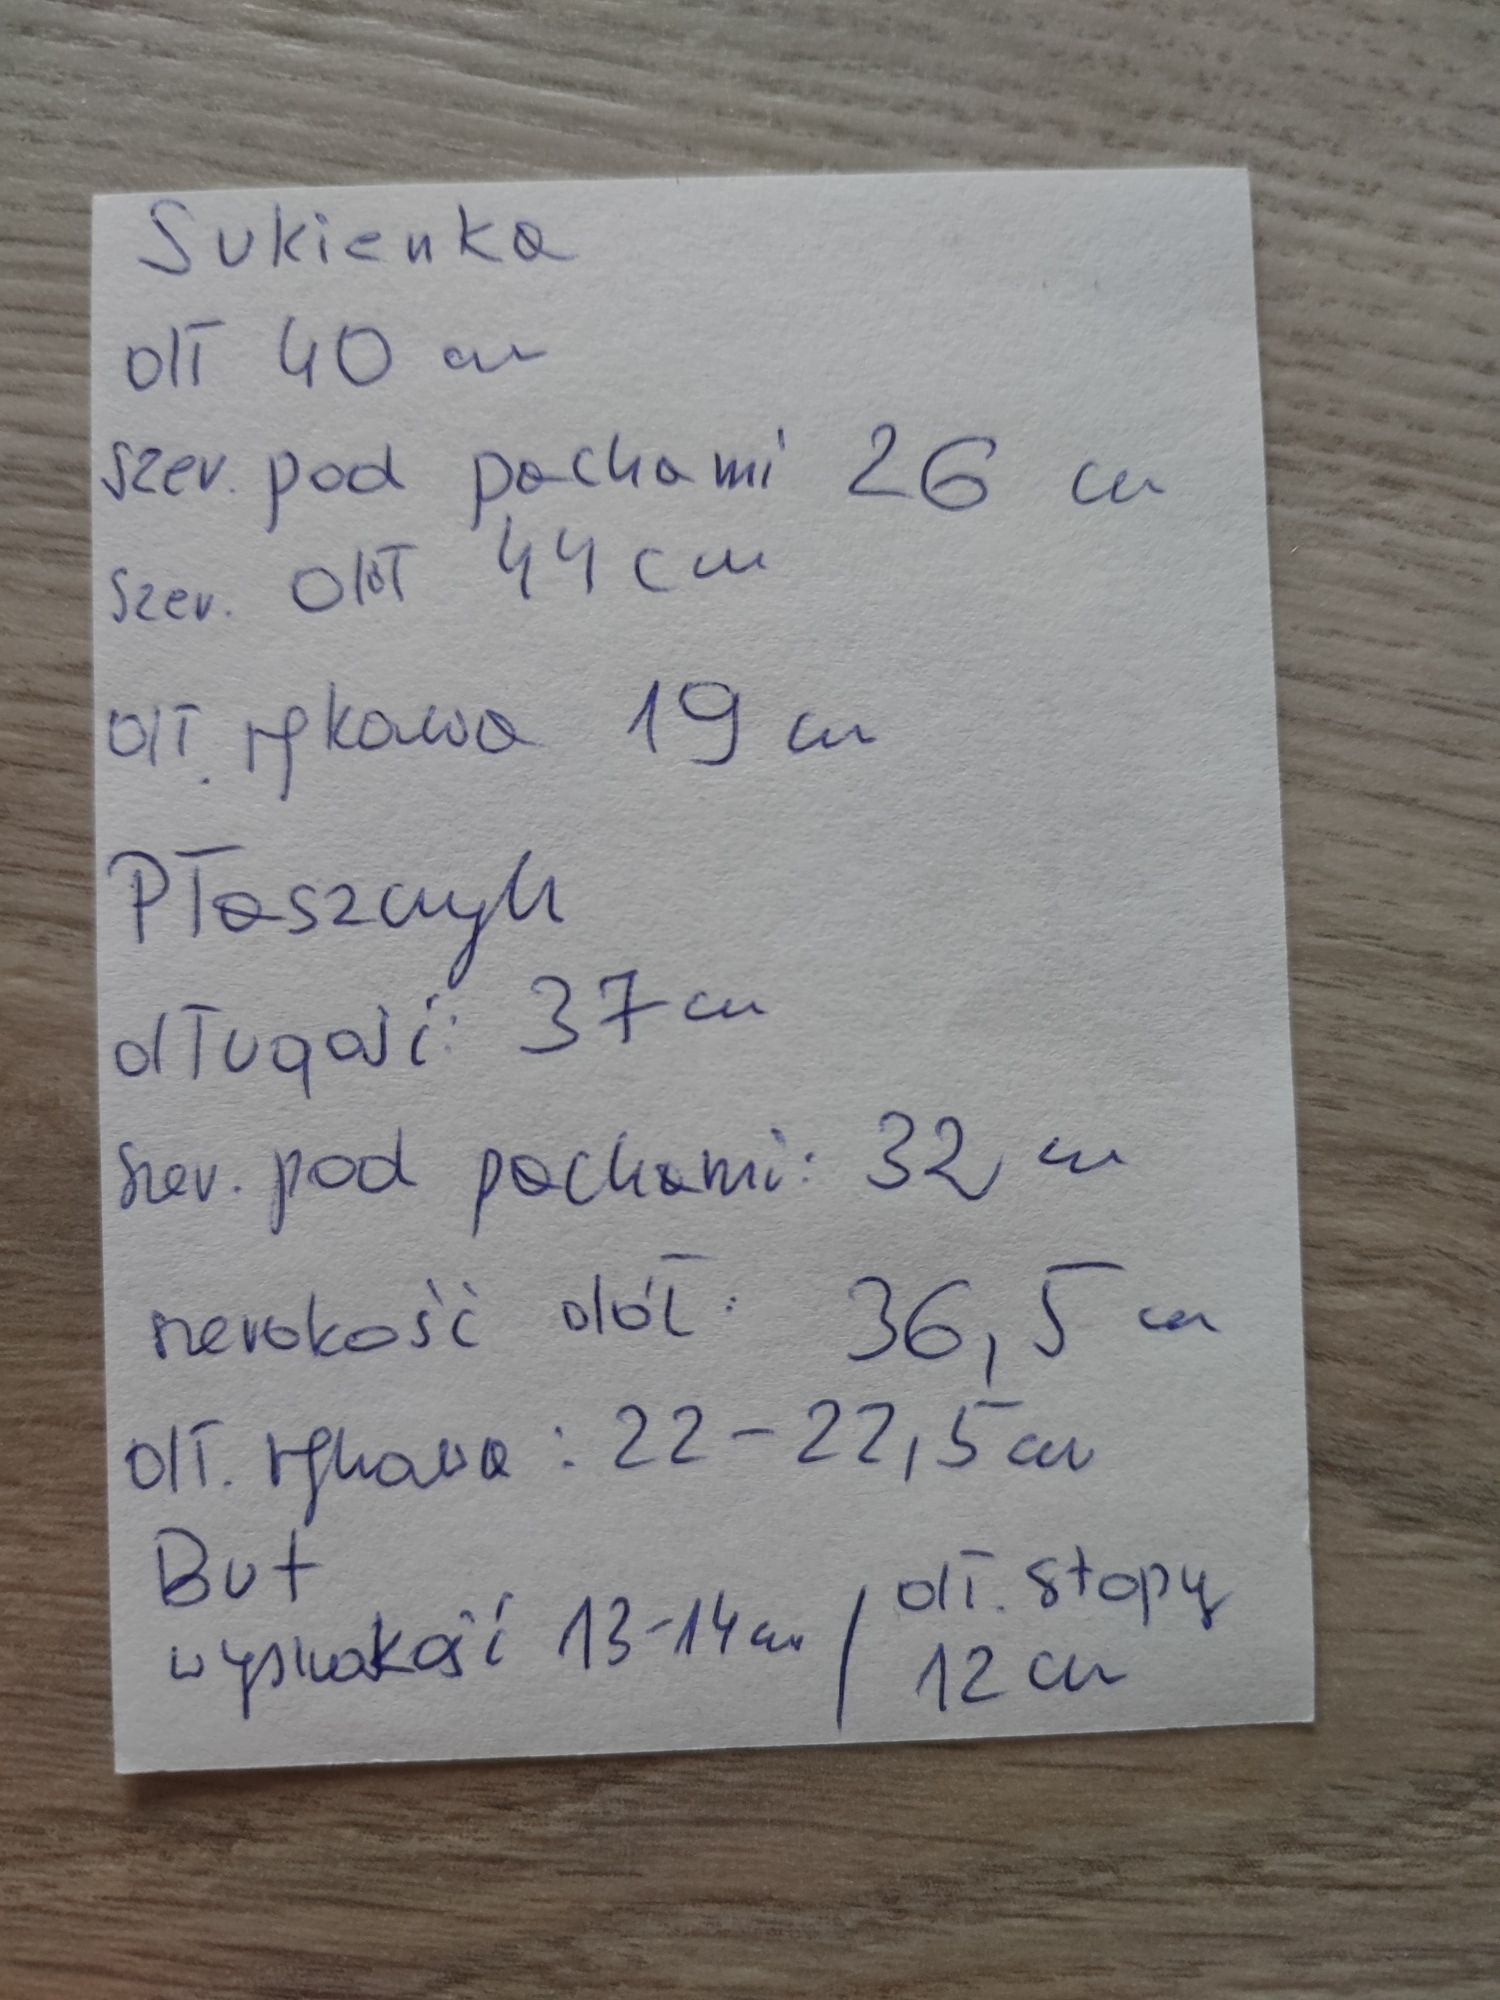 Sukienka
dł 40 cm
szer. pod pachami 26 cm
szer. dół 44 cm
dł. rękawa 19 cm
Płaszczyk
długość: 37 cm
szer. pod pachami: 32 cm
szerokość dół: 36,5 cm
dł. rękawa: 22-22,5 cm
But
wysokość 13-14 cm / dł. stopy
12 cm